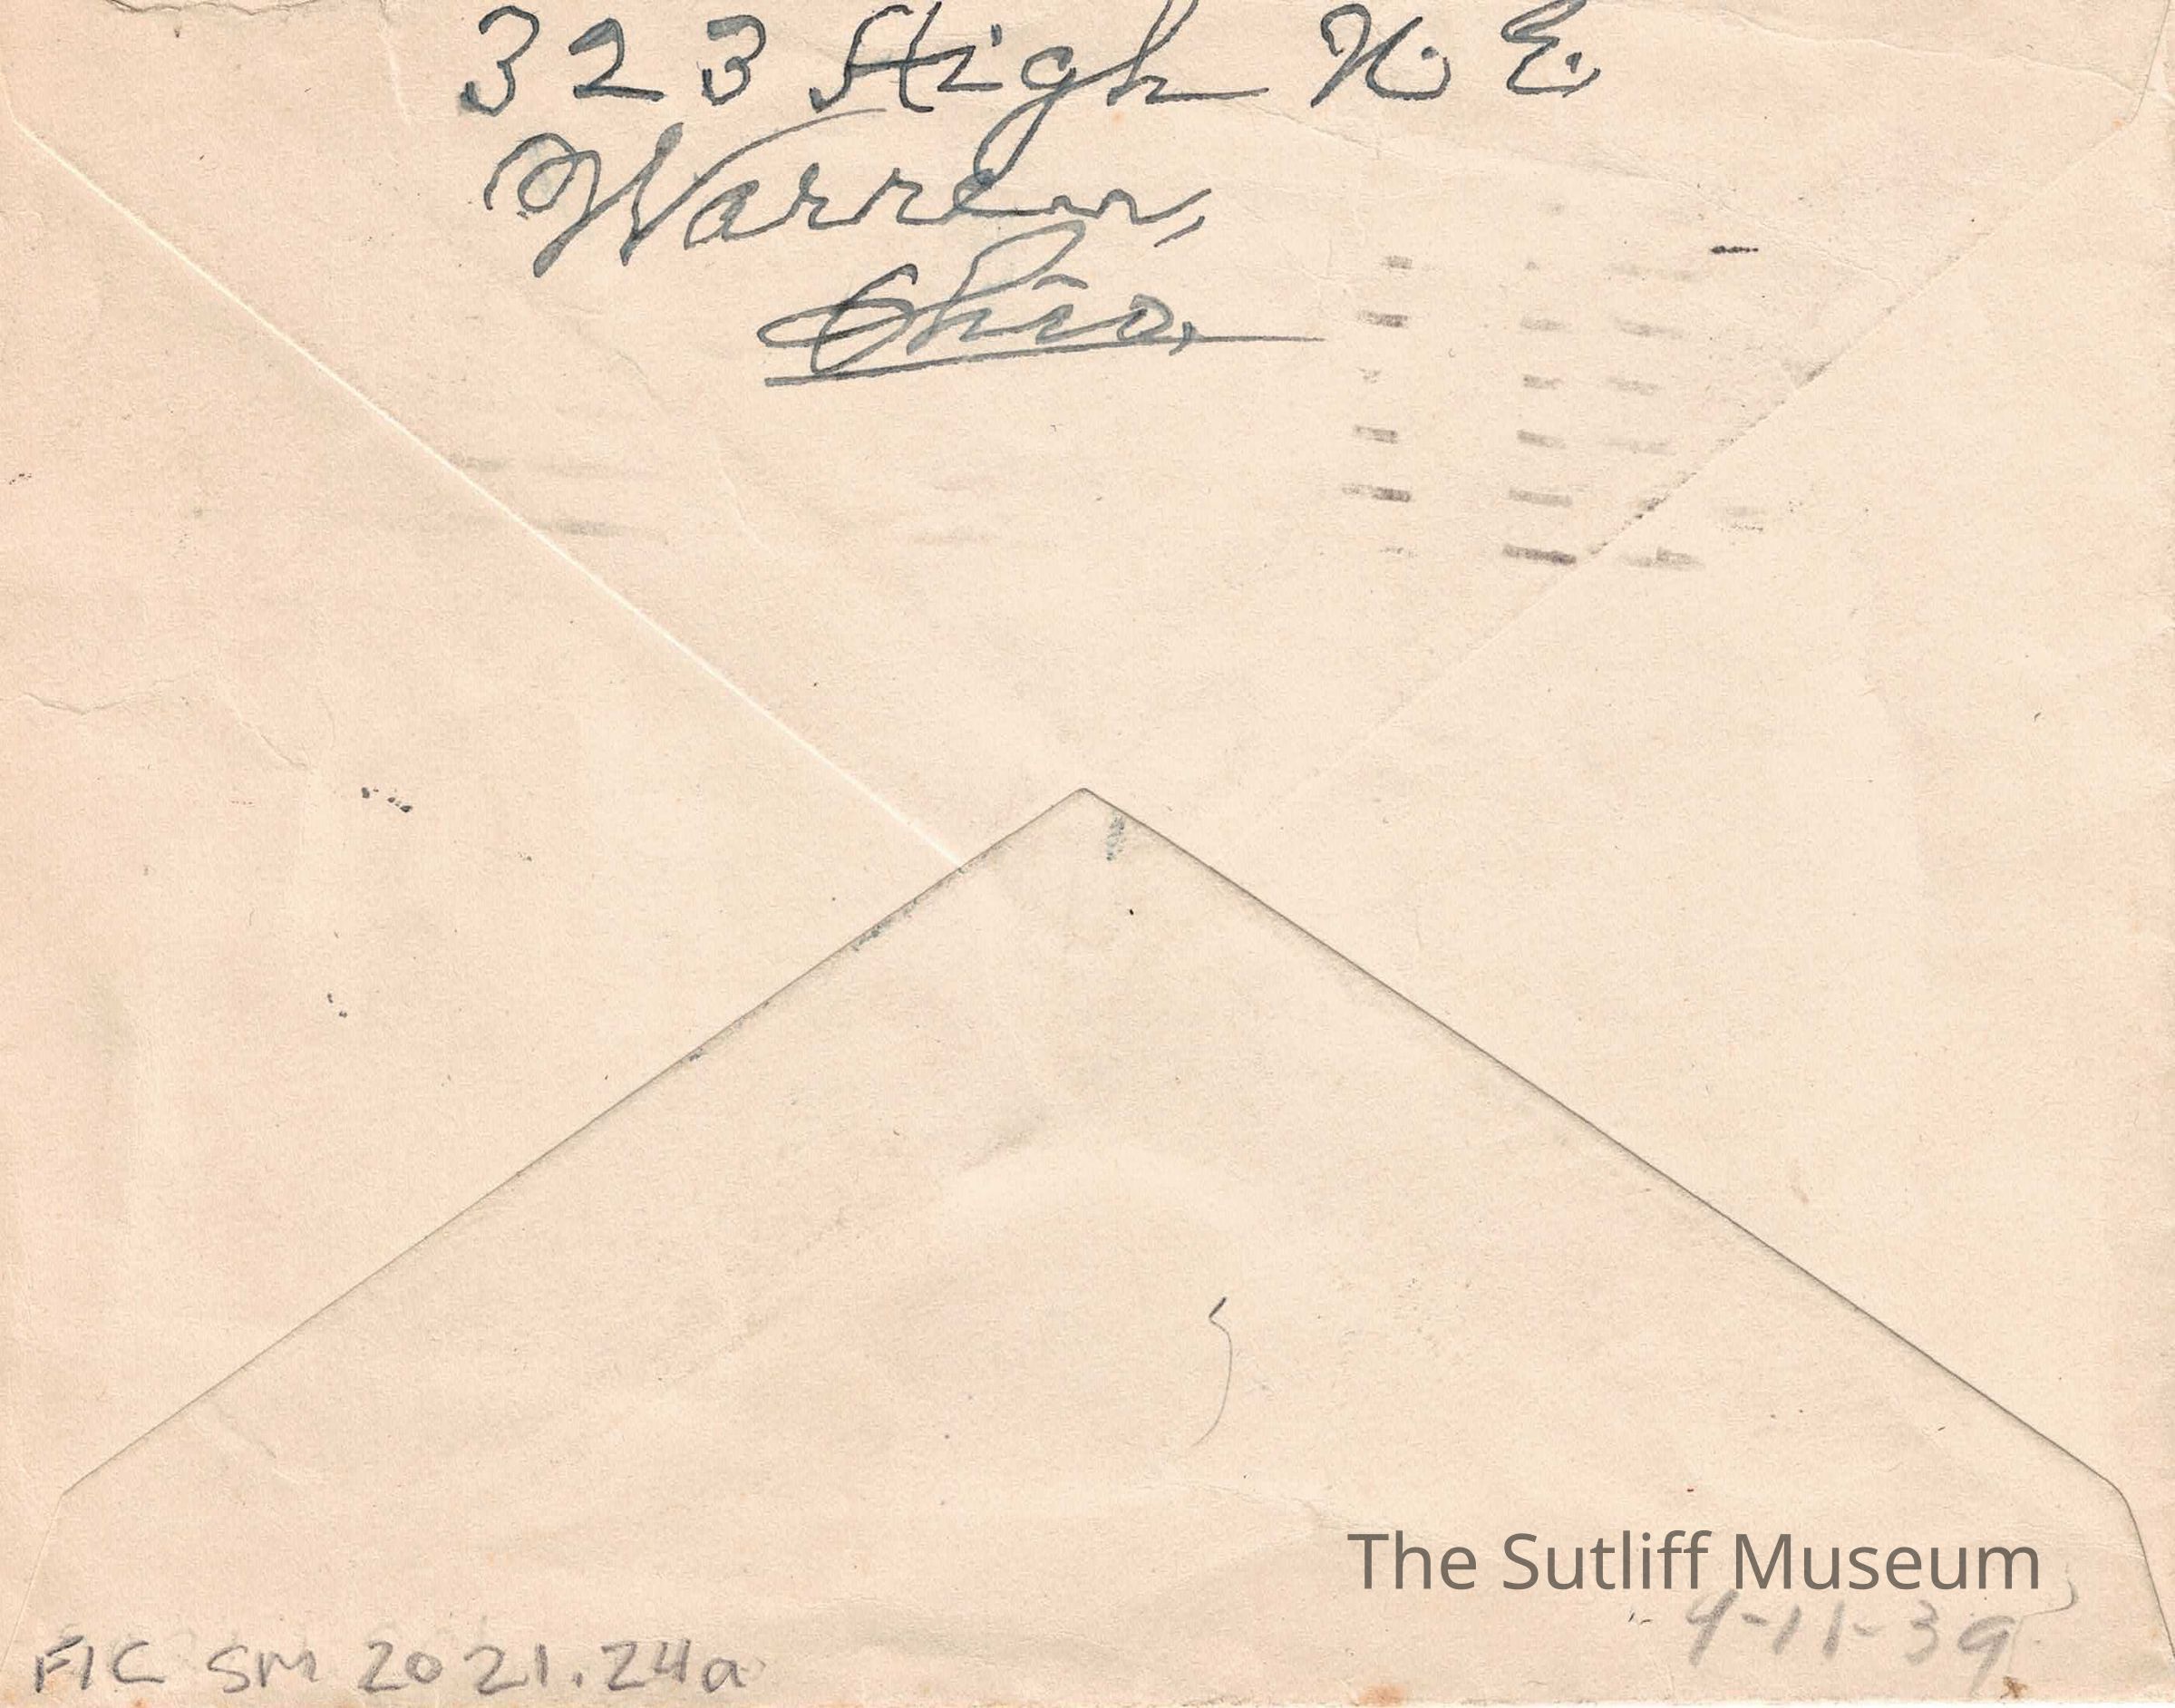 323 High N. E.
Warren,
Ohio.
The Sutliff Museum
9-11-39
FIC SM 2021.24a